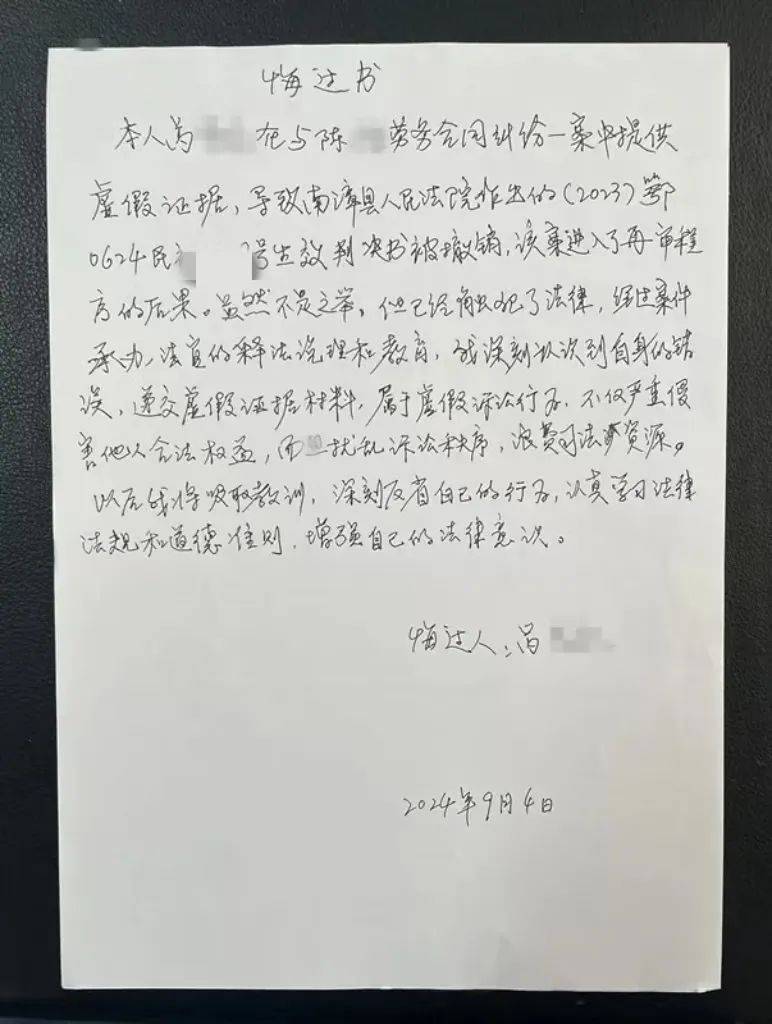 悔过书
本人 在与陈 劳务合同纠纷一案中提供
虚假证据，导致南漳县人民法院作出的（2023）鄂
0624民 号生效判决书被撤销，该案进入了再审程
序的后果。虽然不是之举，但已经触犯了法律，经过案件
承办法官的释法说理和教育，我深刻认识到自身的错
误，递交虚假证据材料，属于虚假诉讼行为，不仅严重侵
害他人合法权益，而 扰乱诉讼秩序，浪费司法资源。
以后我将吸取教训，深刻反省自己的行为，认真学习法律
法规和道德准则，增强自己的法律意识。
悔过人：
2024年9月4日